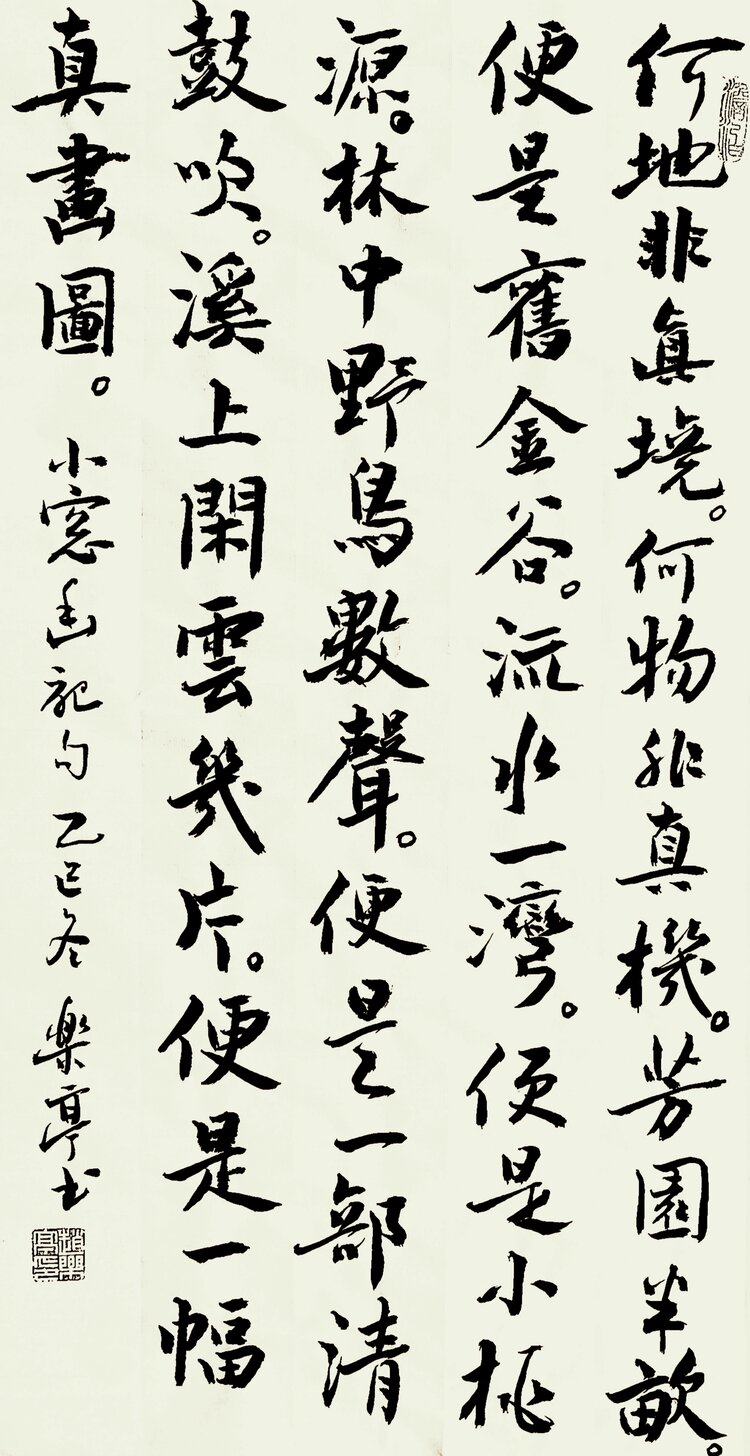 何地非真境。何物非真機。芳園半畝。
便是舊金谷。流水一灣。便是小桃
源。林中野鳥數聲。便是一部清
鼓吹。溪上閑雲幾片。便是一幅
真畫圖。
小窓幽記句 乙巳冬 樂亭书